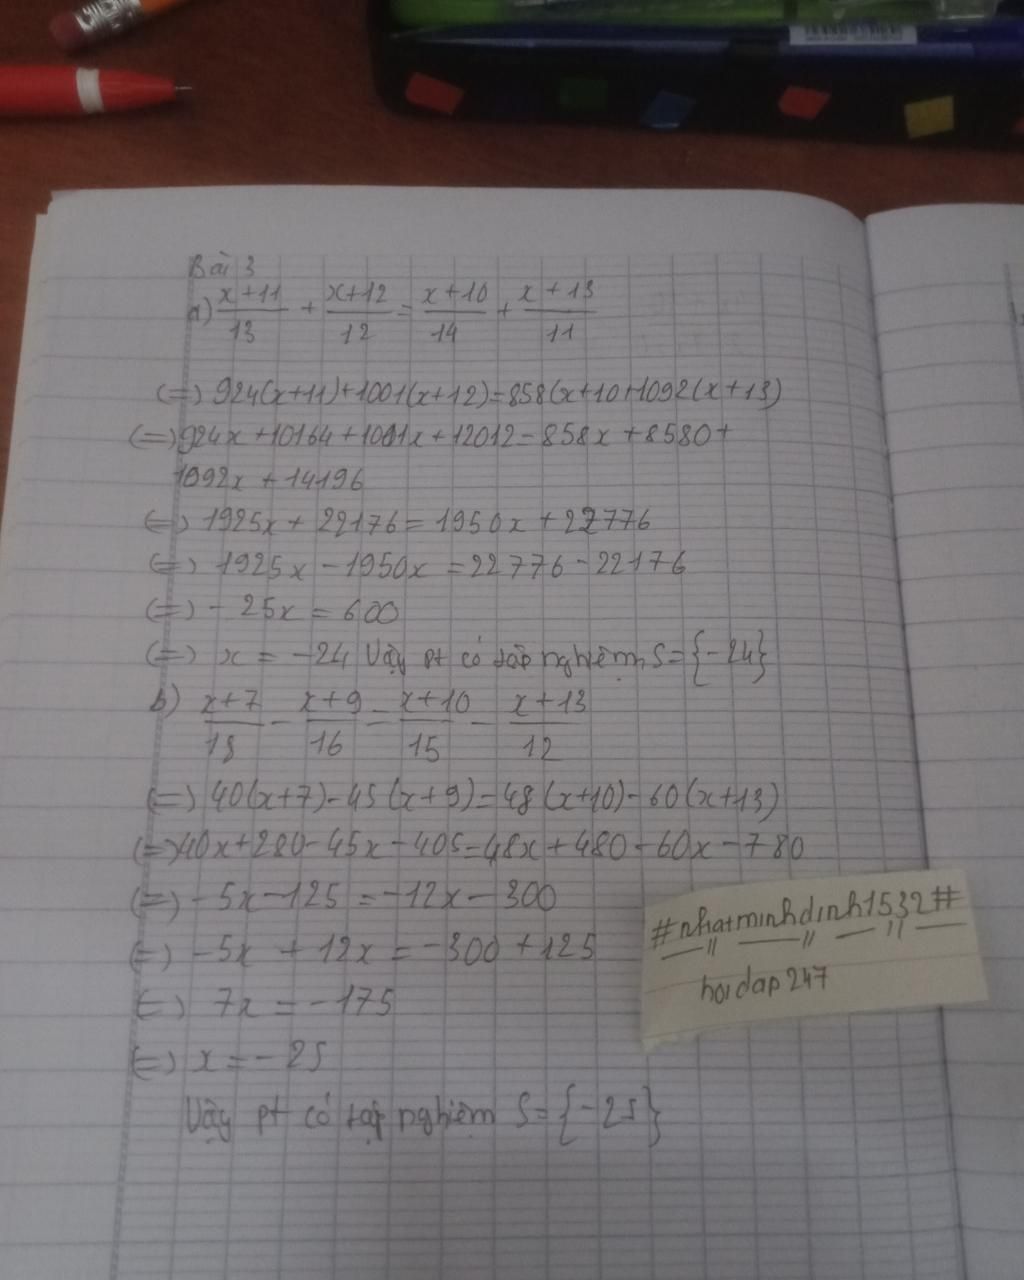 Bài 3
a) x+11/13 + x+12/12 = x+10/14 + x+13/11
(=) 924(x+11)+1001(x+12)=858(x+10+1092(x+13)
(=) 924x+10164+1001x+12012=858x+8580+
1092x+14196
(=) 1925x+22176=1950x+22776
(=) 1925x-1950x=22776-22176
(=) -25x=600
(=) x=-24 Vậy pt có tập nghiệm S={-24}
b) x+7/18 - x+9/16 = x+10/15 - x+13/12
(=) 40(x+7)-45(x+9)=48(x+10)-60(x+13)
(=) 40x+280-45x-405=48x+480-60x-780
(=) -5x-125=-12x-300
(=) -5x+12x=-300+125
(=) 7x=-175
(=) x=-25
Vậy pt có tập nghiệm S={-25}
#nhatminhdinh1532#
hoidap247